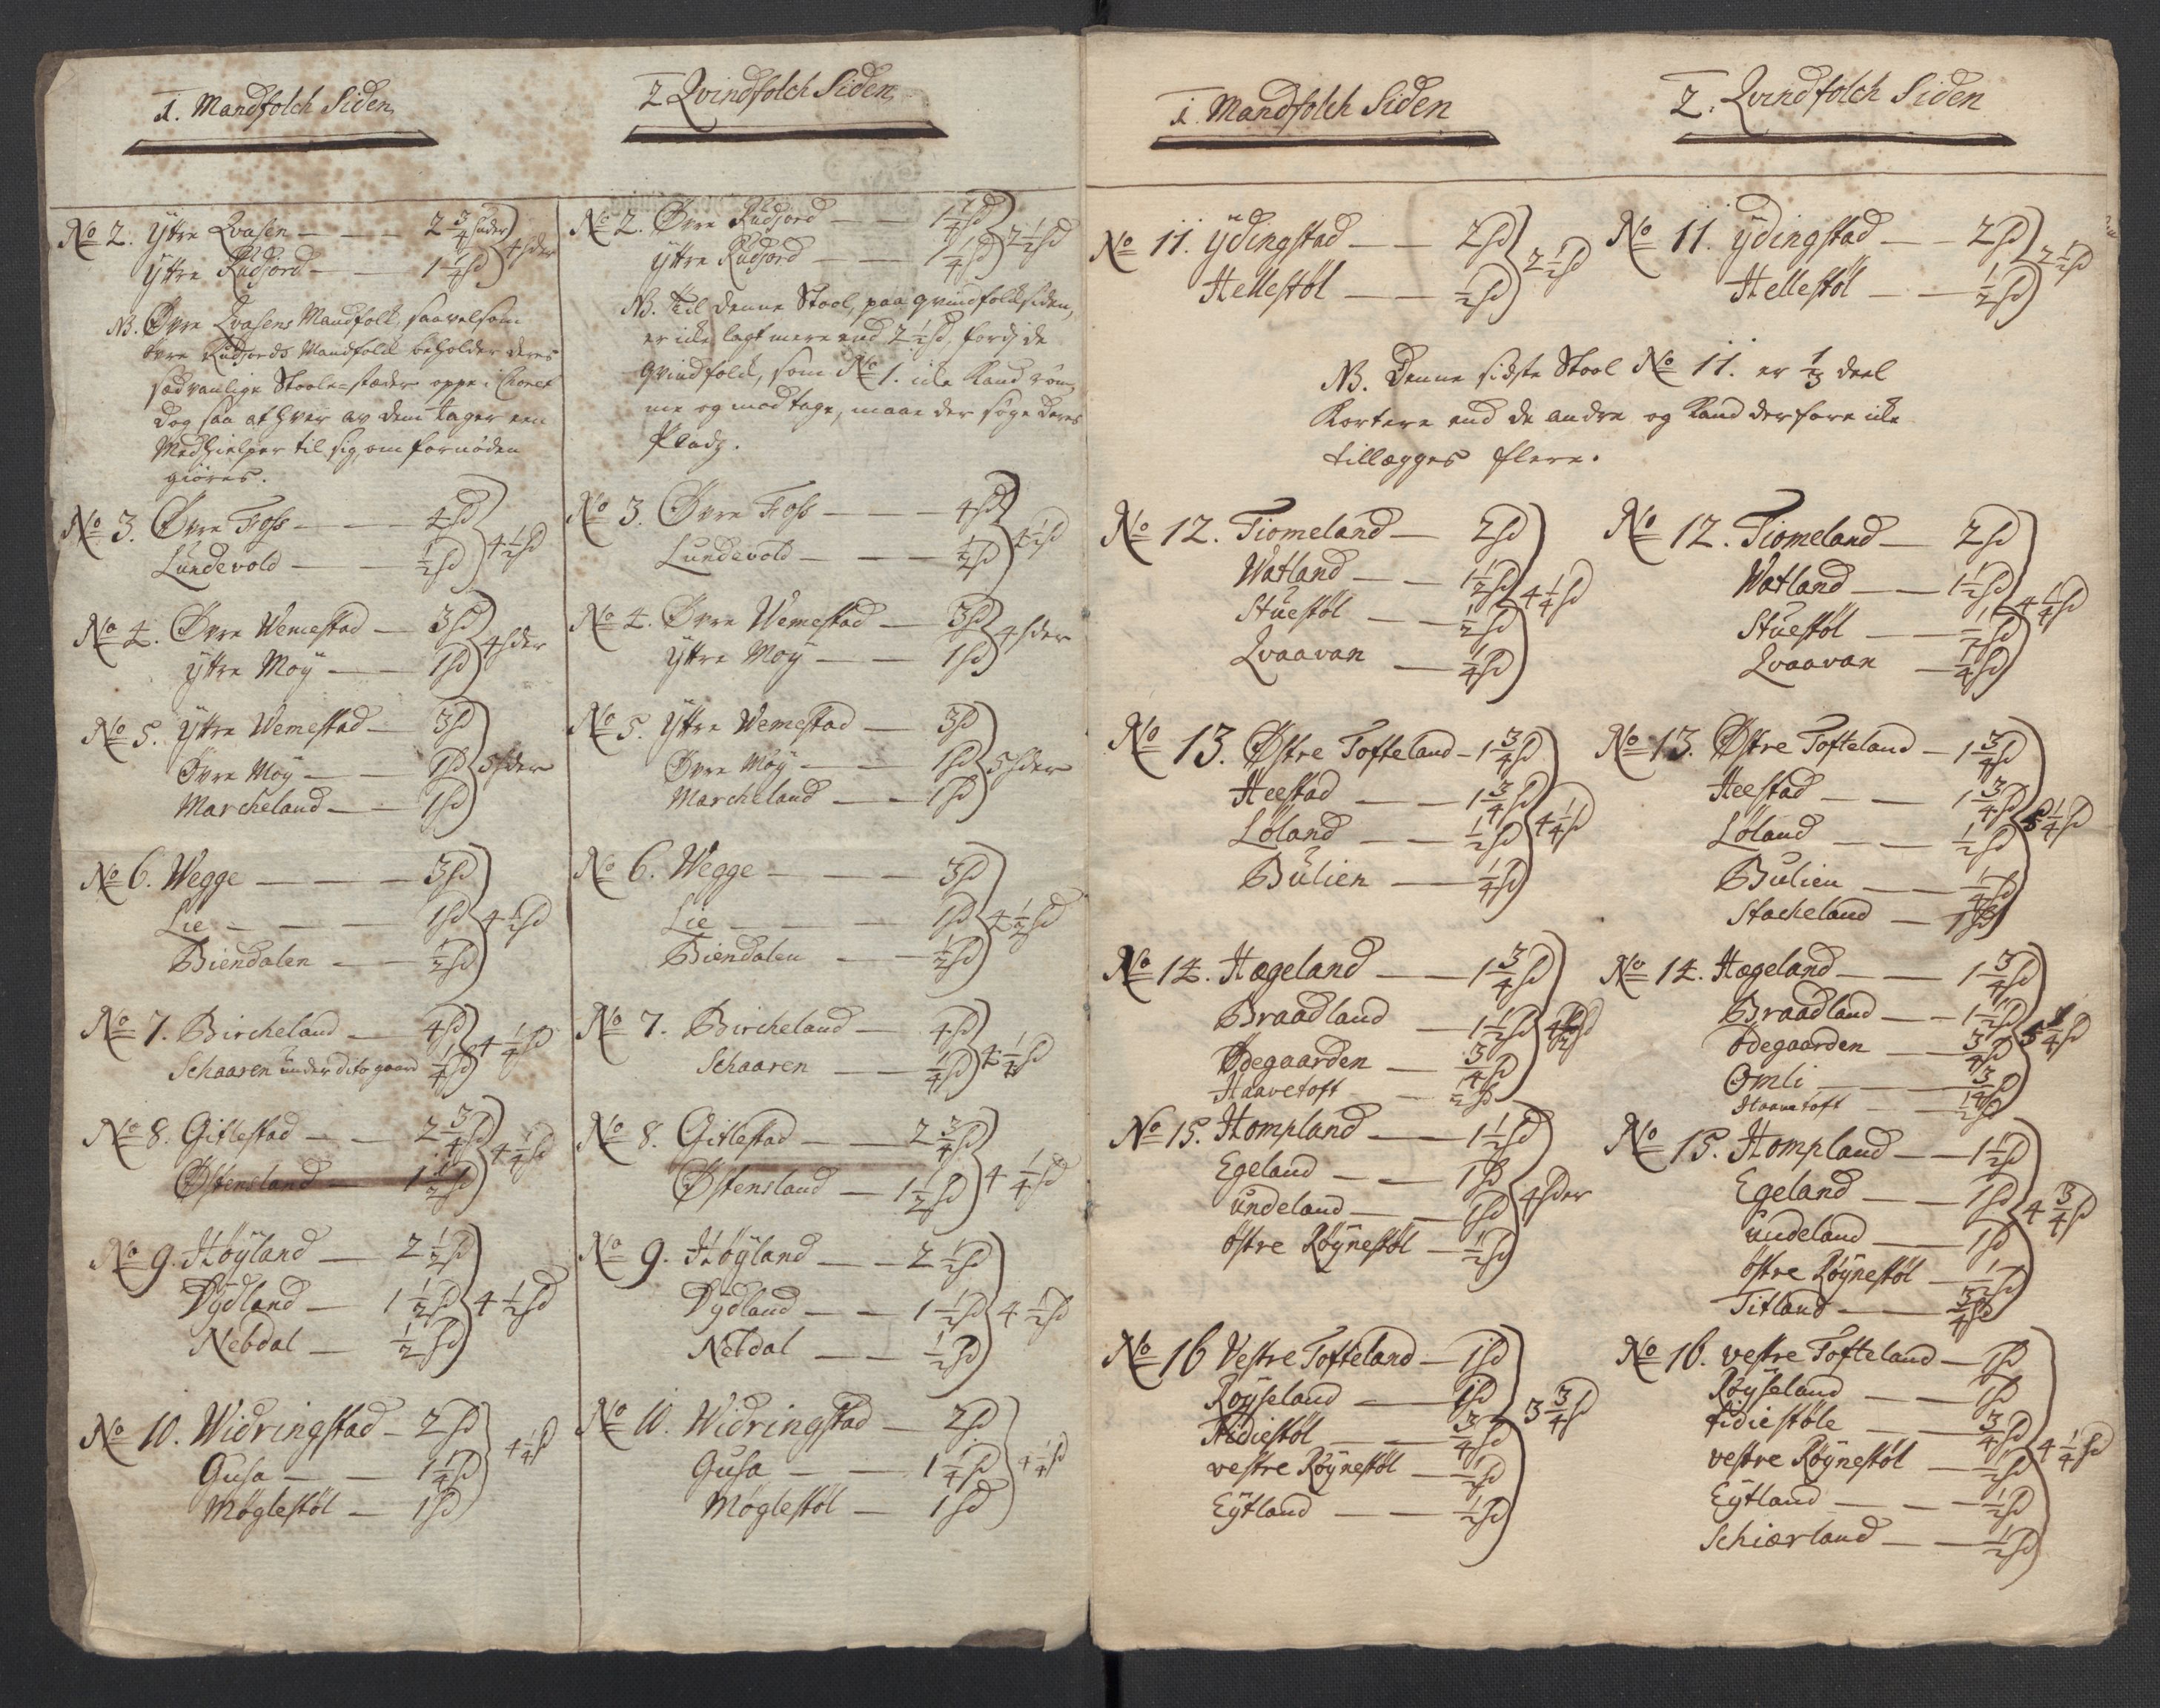 1. Mandfolch Siden
No 2. Yttre Qvasen — — — 2 3/4 sider
Yttre Rudjord — — 1 1/4 sd
4 sder
NB. Øvre Qvasens Mandfolk, saavelsom
Øvre Rudjords Mandfolk beholder deres
sædvanlige Stoele-stæder oppe i Choret
dog saa at hver av dem tager een
Medhielper til sig, om fornøden
giøres.
No 3. Øvre Foss — — — 4 sd
Lundevold — — 1/2 sd
4 1/2 sd
No 4. Øvre Wemestad — 3 sd
Yttre Moÿ — — 1 sd
4 sder
No 5. Yttre Wemestad — 3 sd
Øvre Moÿ — — 1 sd
Marcheland — — 1 sd
5 sder
No 6. Wegge — — — 3 sd
Lie — — — 1 sd
Biendalen — — 1/2 sd
4 1/2 sd
No 7. Bircheland — 4 sd
Schaaren under dito gaard 1/4 sd
4 1/4 sd
No 8. Gitlestad — — 2 3/4 sd
Østensland — 1 1/2 sd
4 1/4 sd
No 9. Høyland — 2 1/2 sd
Dÿdland — 1 1/2 sd
Nebdal — 1/2 sd
4 1/2 sd
No 10. Widringstad — 2 sd
Gusa — — 1 1/4 sd
Møglestøl — 1 sd
4 1/4 sd
2 Qvindfolch Siden
No 2. Øvre Rudjord — — 1 1/4 sd
Yttre Rudjord — — 1 1/4 sd
2 1/2 sd
NB. til denne Stool, paa qvindfolksiden,
er icke lagt mere end 2 1/2 sd, fordj de
Qvindfolk, som No 1. icke kand röm-
me og modtage, maae der søge deres
Pladz.
No 3. Øvre Foss — — — 4 sd
Lundevold — — — 1/2 sd
4 1/2 sd
No 4. Øvre Wemestad — 3 sd
Yttre Moÿ — — 1 sd
4 sder
No 5. Yttre Wemestad — 3 sd
Øvre Moÿ — — 1 sd
Marcheland — — 1 sd
5 sder
No 6. Wegge — — — 3 sd
Lie — — — 1 sd
Biendalen — — 1/2 sd
4 1/2 sd
No 7. Bircheland — 4 sd
Schaaren — — 1/4 sd
4 1/4 sd
No 8. Gitlestad — — 2 3/4 sd
Østensland — 1 1/2 sd
4 1/4 sd
No 9. Høÿland — — 2 1/2 sd
Dÿdland — — 1 1/2 sd
Nebdal — — 1/2 sd
4 1/2 sd
No 10. Widringstad — 2 sd
Gusa — — 1 1/4 sd
Møglestøl — 1 sd
4 1/4 sd
1. Mandfolch Siden
2. Qvindfolch Siden
No 11. ÿdingstad — — 2 sd
Hellestøl — — 1/2 sd
2 1/2 sd
No 11. ÿdingstad — — 2 sd
Hellestøl — — 1/2 sd
2 1/2 sd
NB. Denne sidste Stool No 11. er 1/3 deel
Kortere end de andre og kand derfore icke
tillægges flere.
No 12. Tiomeland — 2 sd
Watland — — 1 1/2 sd
Stuestøl — — 1/2 sd
Qvaavan — 1/4 sd
4 1/4 sd
No 13. Østre Tofteland — 1 3/4 sd
Heestad — — 1 3/4 sd
Løland — — 1/2 sd
Bülien — — 1/4 sd
4 1/4 sd
No 14. Hageland — — 1 3/4 sd
Braadland — 1 1/2 sd
Ødegaarden — 3/4 sd
Haavetoft — 1/2 sd
No 15. Hompland — — 1 1/2 sd
Egeland — — 1 sd
undeland — — 1 sd
østre Røÿnestøl — 1/2 sd
4 sder
No 16 Vestre Tofteland — 1 sd
Røÿseland — 1 sd
Hidiestøl — — 3/4 sd
vestre Røÿnestøl — 1/2 sd
Eÿtland — — 1/2 sd
3 3/4 sd
No 12. Tiomeland — 2 sd
Watland — — 1 1/2 sd
Stuestøl — — 1/2 sd
Qvaavan — 1/4 sd
4 1/4 sd
No 13. Østre Tofteland — 1 3/4 sd
Heestad — — 1 3/4 sd
Løland — — 1/2 sd
Bulien — — 1/4 sd
Stacheland — 1 sd
5 1/4 sd
No 14. Hageland — — 1 3/4 sd
Braadland — — 1 1/2 sd
Ødegaarden — 3/4 sd
Omli — — 3/4 sd
Haavetoft — — 1/2 sd
No 15. Hompland — — 1 1/2 sd
Egeland — — 1 sd
undeland — — 1 sd
østre Røÿnestøl — 1/2 sd
Titland — — 3/4 sd
4 3/4 sd
No 16. vestre Tofteland — 1 sd
Røÿseland — — 1 sd
hidiestøle — — 3/4 sd
vestre Røÿnestøl — 1/2 sd
Eÿtland — — — 1/2 sd
Schiærland — — 1/2 sd
4 1/4 sd